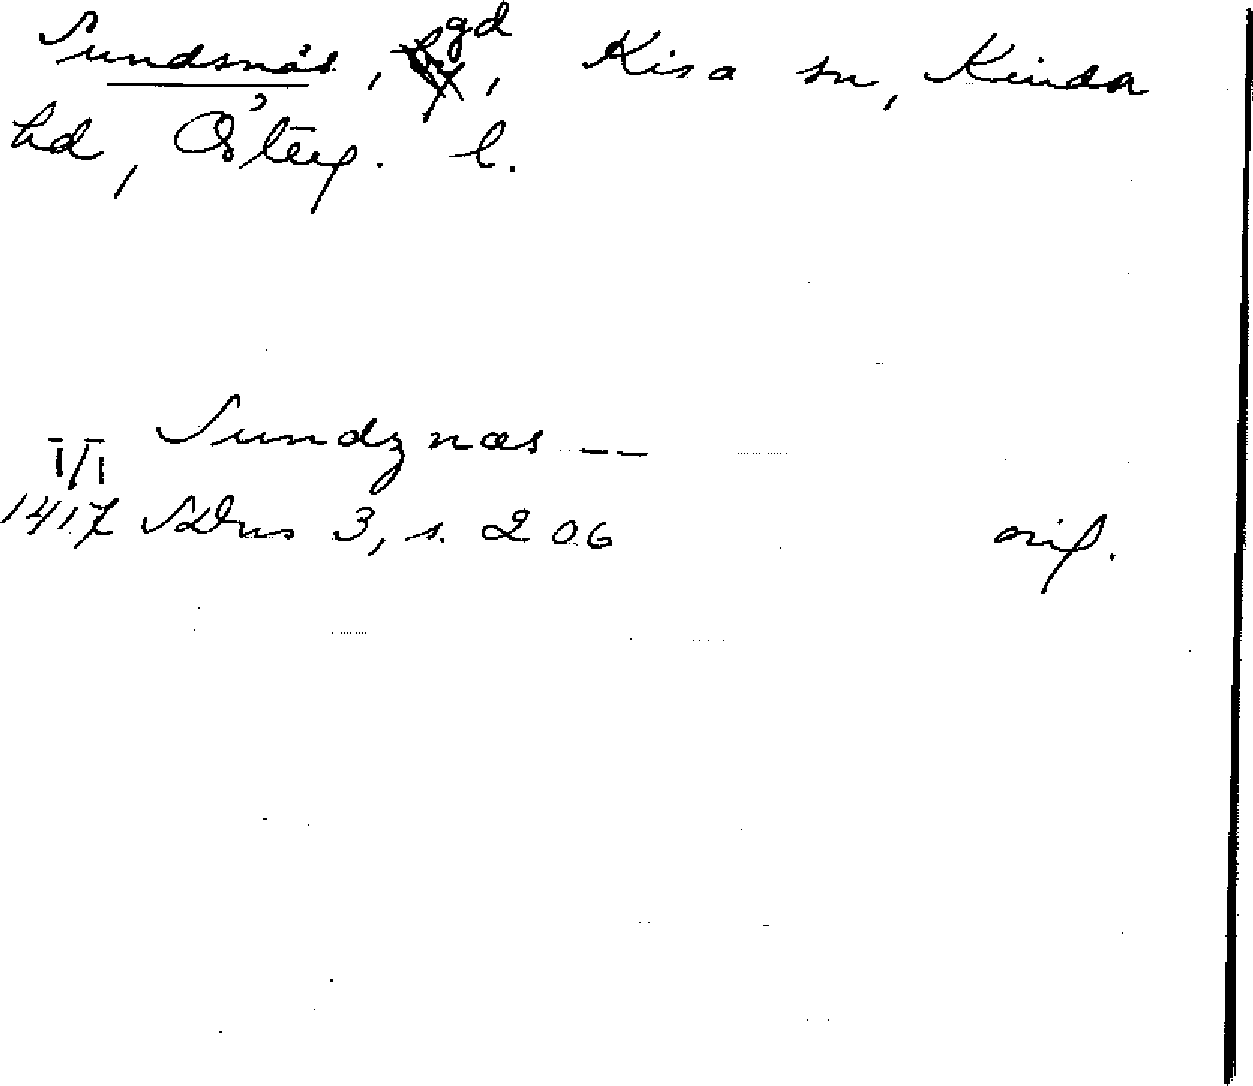 Sundsnäs, gd, Kisa sn, Kinda
hd, Österg. l.
Sundznæs --
1/1
1417 SDns 3, s. 206 orig.